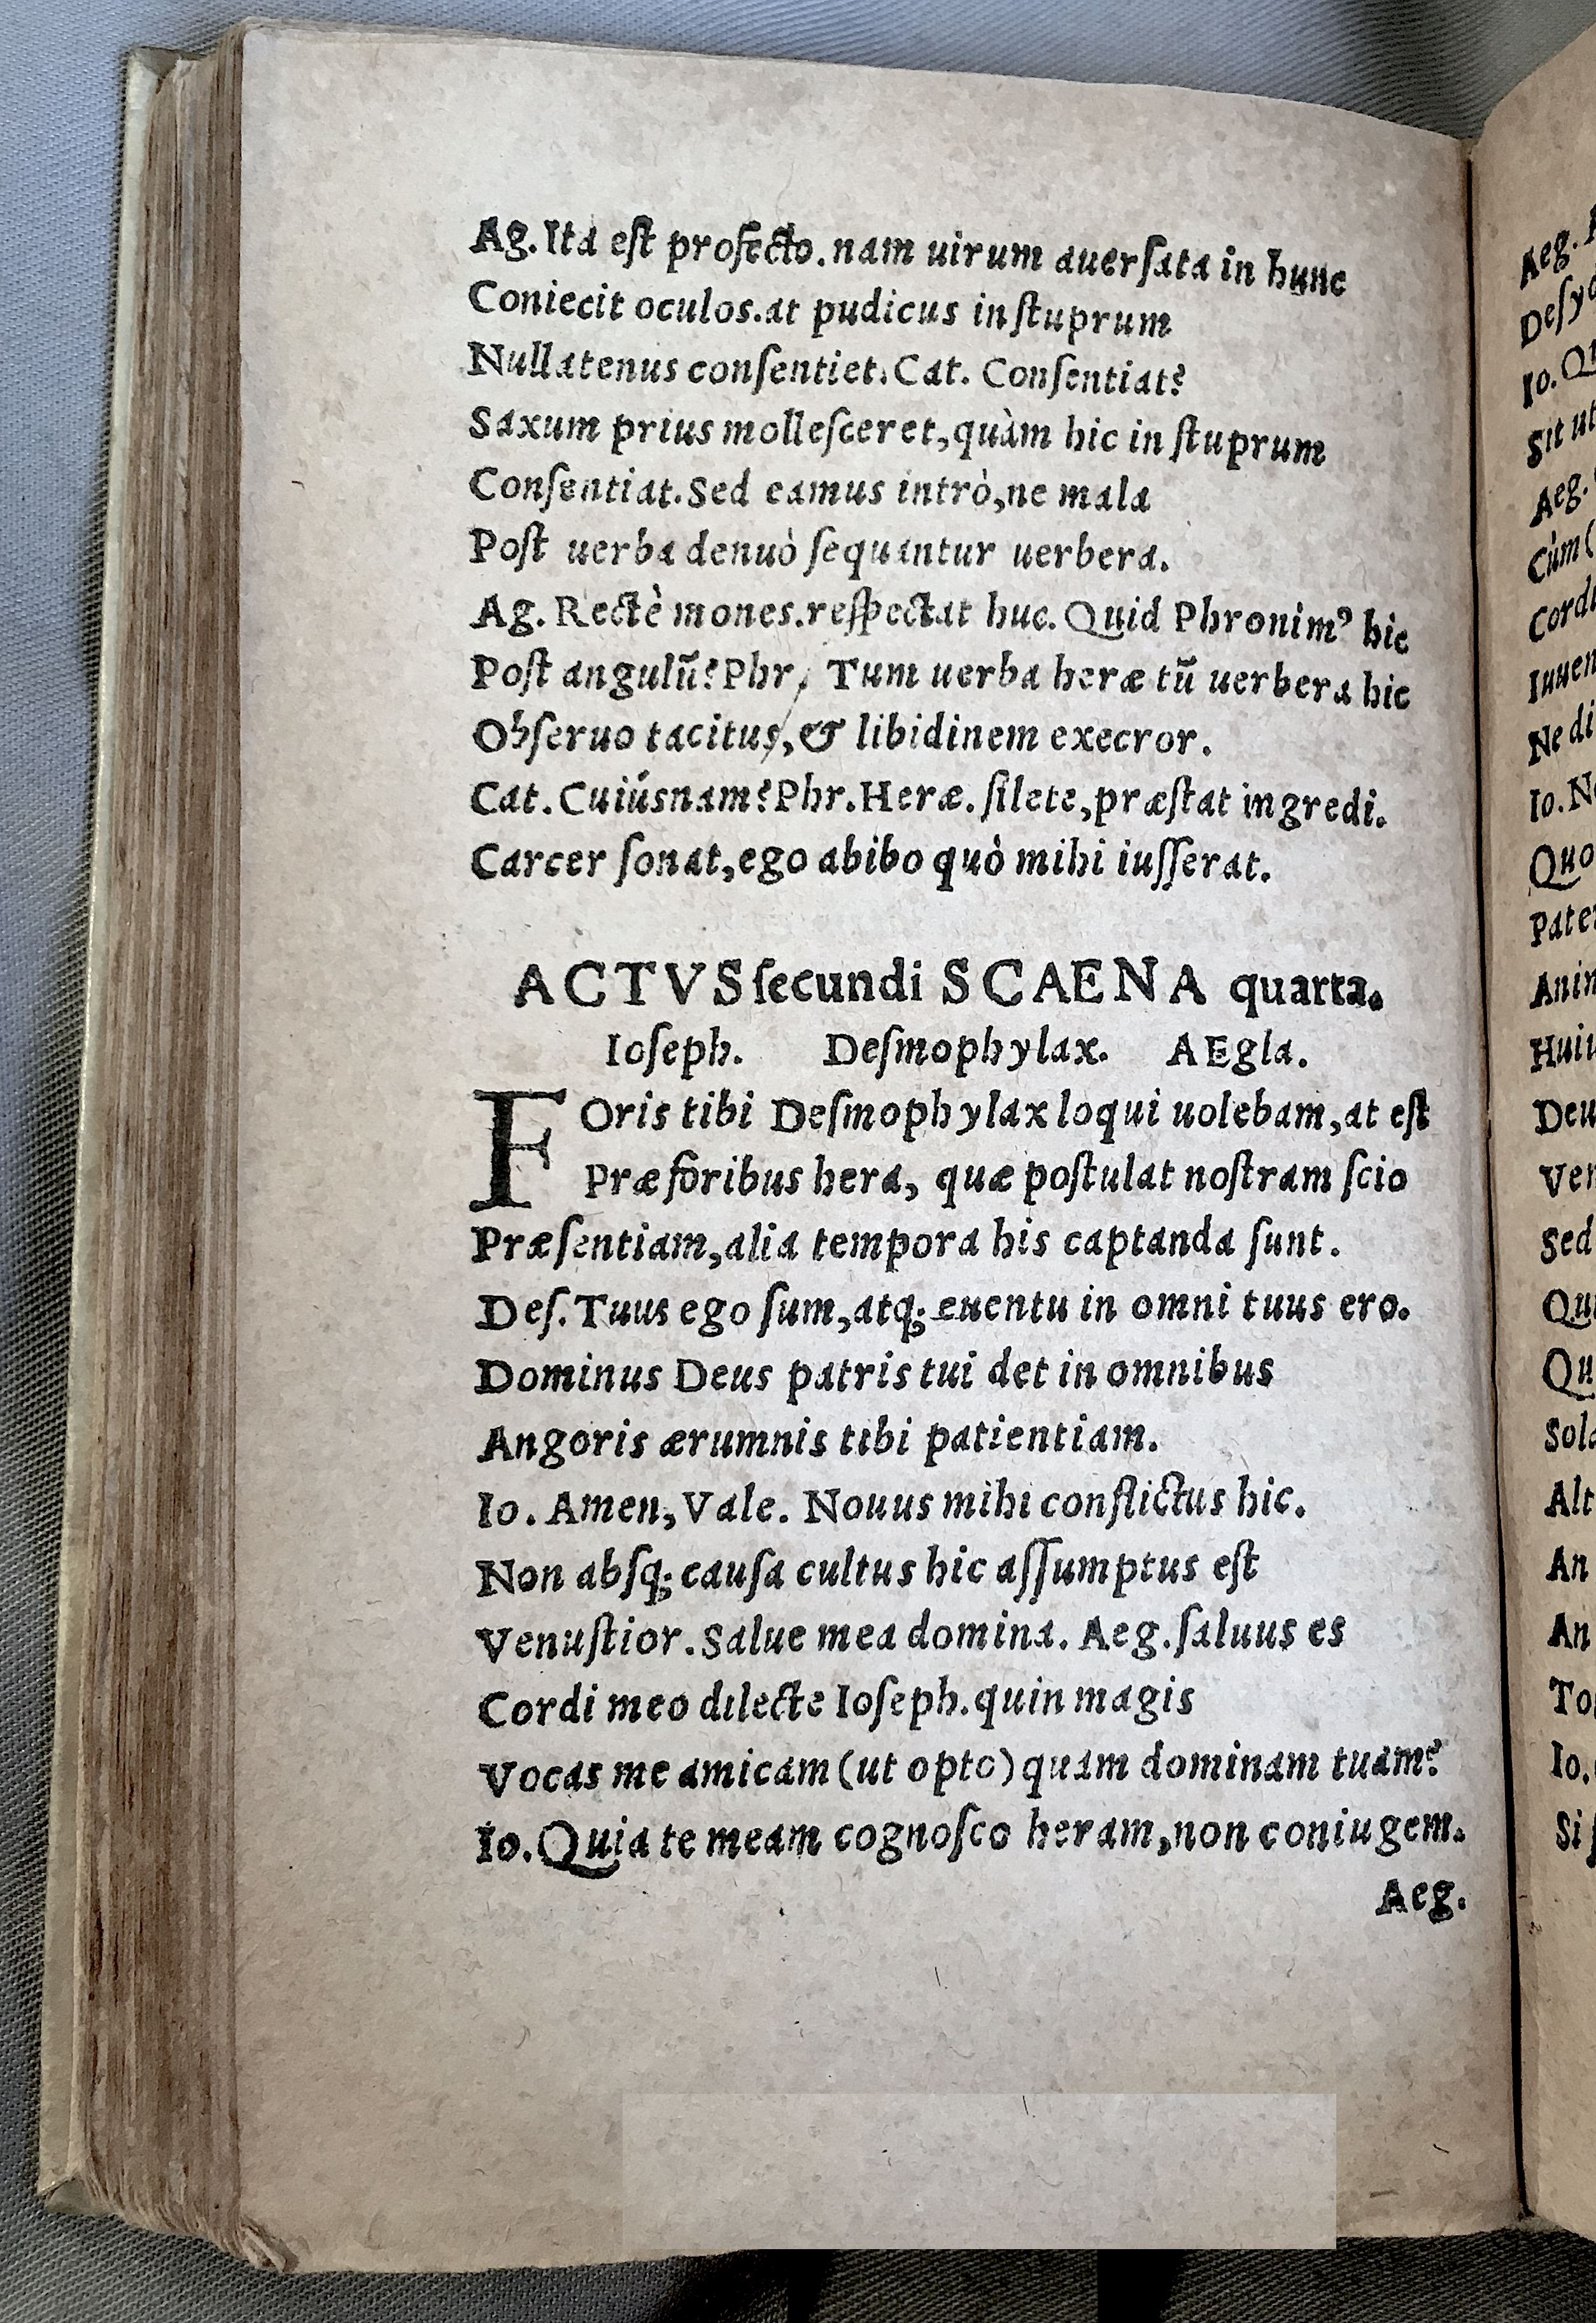 Ag. Ita eſt profecto. nam uirum auerſata in hunc
Coniecit oculos. at pudicus in ſtuprum
Nullatenus conſentiet. Cat. Conſentiat?
Saxum prius molleſceret, quàm hic in ſtuprum
Conſentiat. Sed eamus intrò, ne mala
Poſt uerba denuò ſequantur uerbera.
Ag. Rectè mones. reſpectat huc. Quid Phronimꝰ hic
Poſt angulũ? Phr. Tum uerba heræ tũ uerbera hic
Obſeruo tacitus, & libidinem execror.
Cat. Cuiúsnam? Phr. Heræ. ſilete, præſtat ingredi.
Carcer ſonat, ego abibo quò mihi iuſſerat.
ACTVS ſecundi SCAENA quarta.
Ioſeph. Deſmophylax. AEgla.
FOris tibi Deſmophylax loqui uolebam, at eſt
Præ foribus hera, quæ poſtulat noſtram ſcio
Præſentiam, alia tempora his captanda ſunt.
Deſ. Tuus ego ſum, atq; euentu in omni tuus ero.
Dominus Deus patris tui det in omnibus
Angoris ærumnis tibi patientiam.
Io. Amen, Vale. Nouus mihi conflictus hic.
Non abſq; cauſa cultus hic aſſumptus eſt
Venuſtior. Salue mea domina. Aeg. ſaluus es
Cordi meo dilecte Ioſeph. quin magis
Vocas me amicam (ut opto) quam dominam tuam?
Io. Quia te meam cognoſco heram, non coniugem.
Aeg.
Aeg.
Deſy
Io. Q
Sit ut
Aeg.
Cùm (
Cord
Iuuen
Ne di
Io. N
Quo
Pater
Anim
Huiu
Deu
Ven
Sed
Qu
Qu
Sola
Alt
An
An
To
Io.
Si